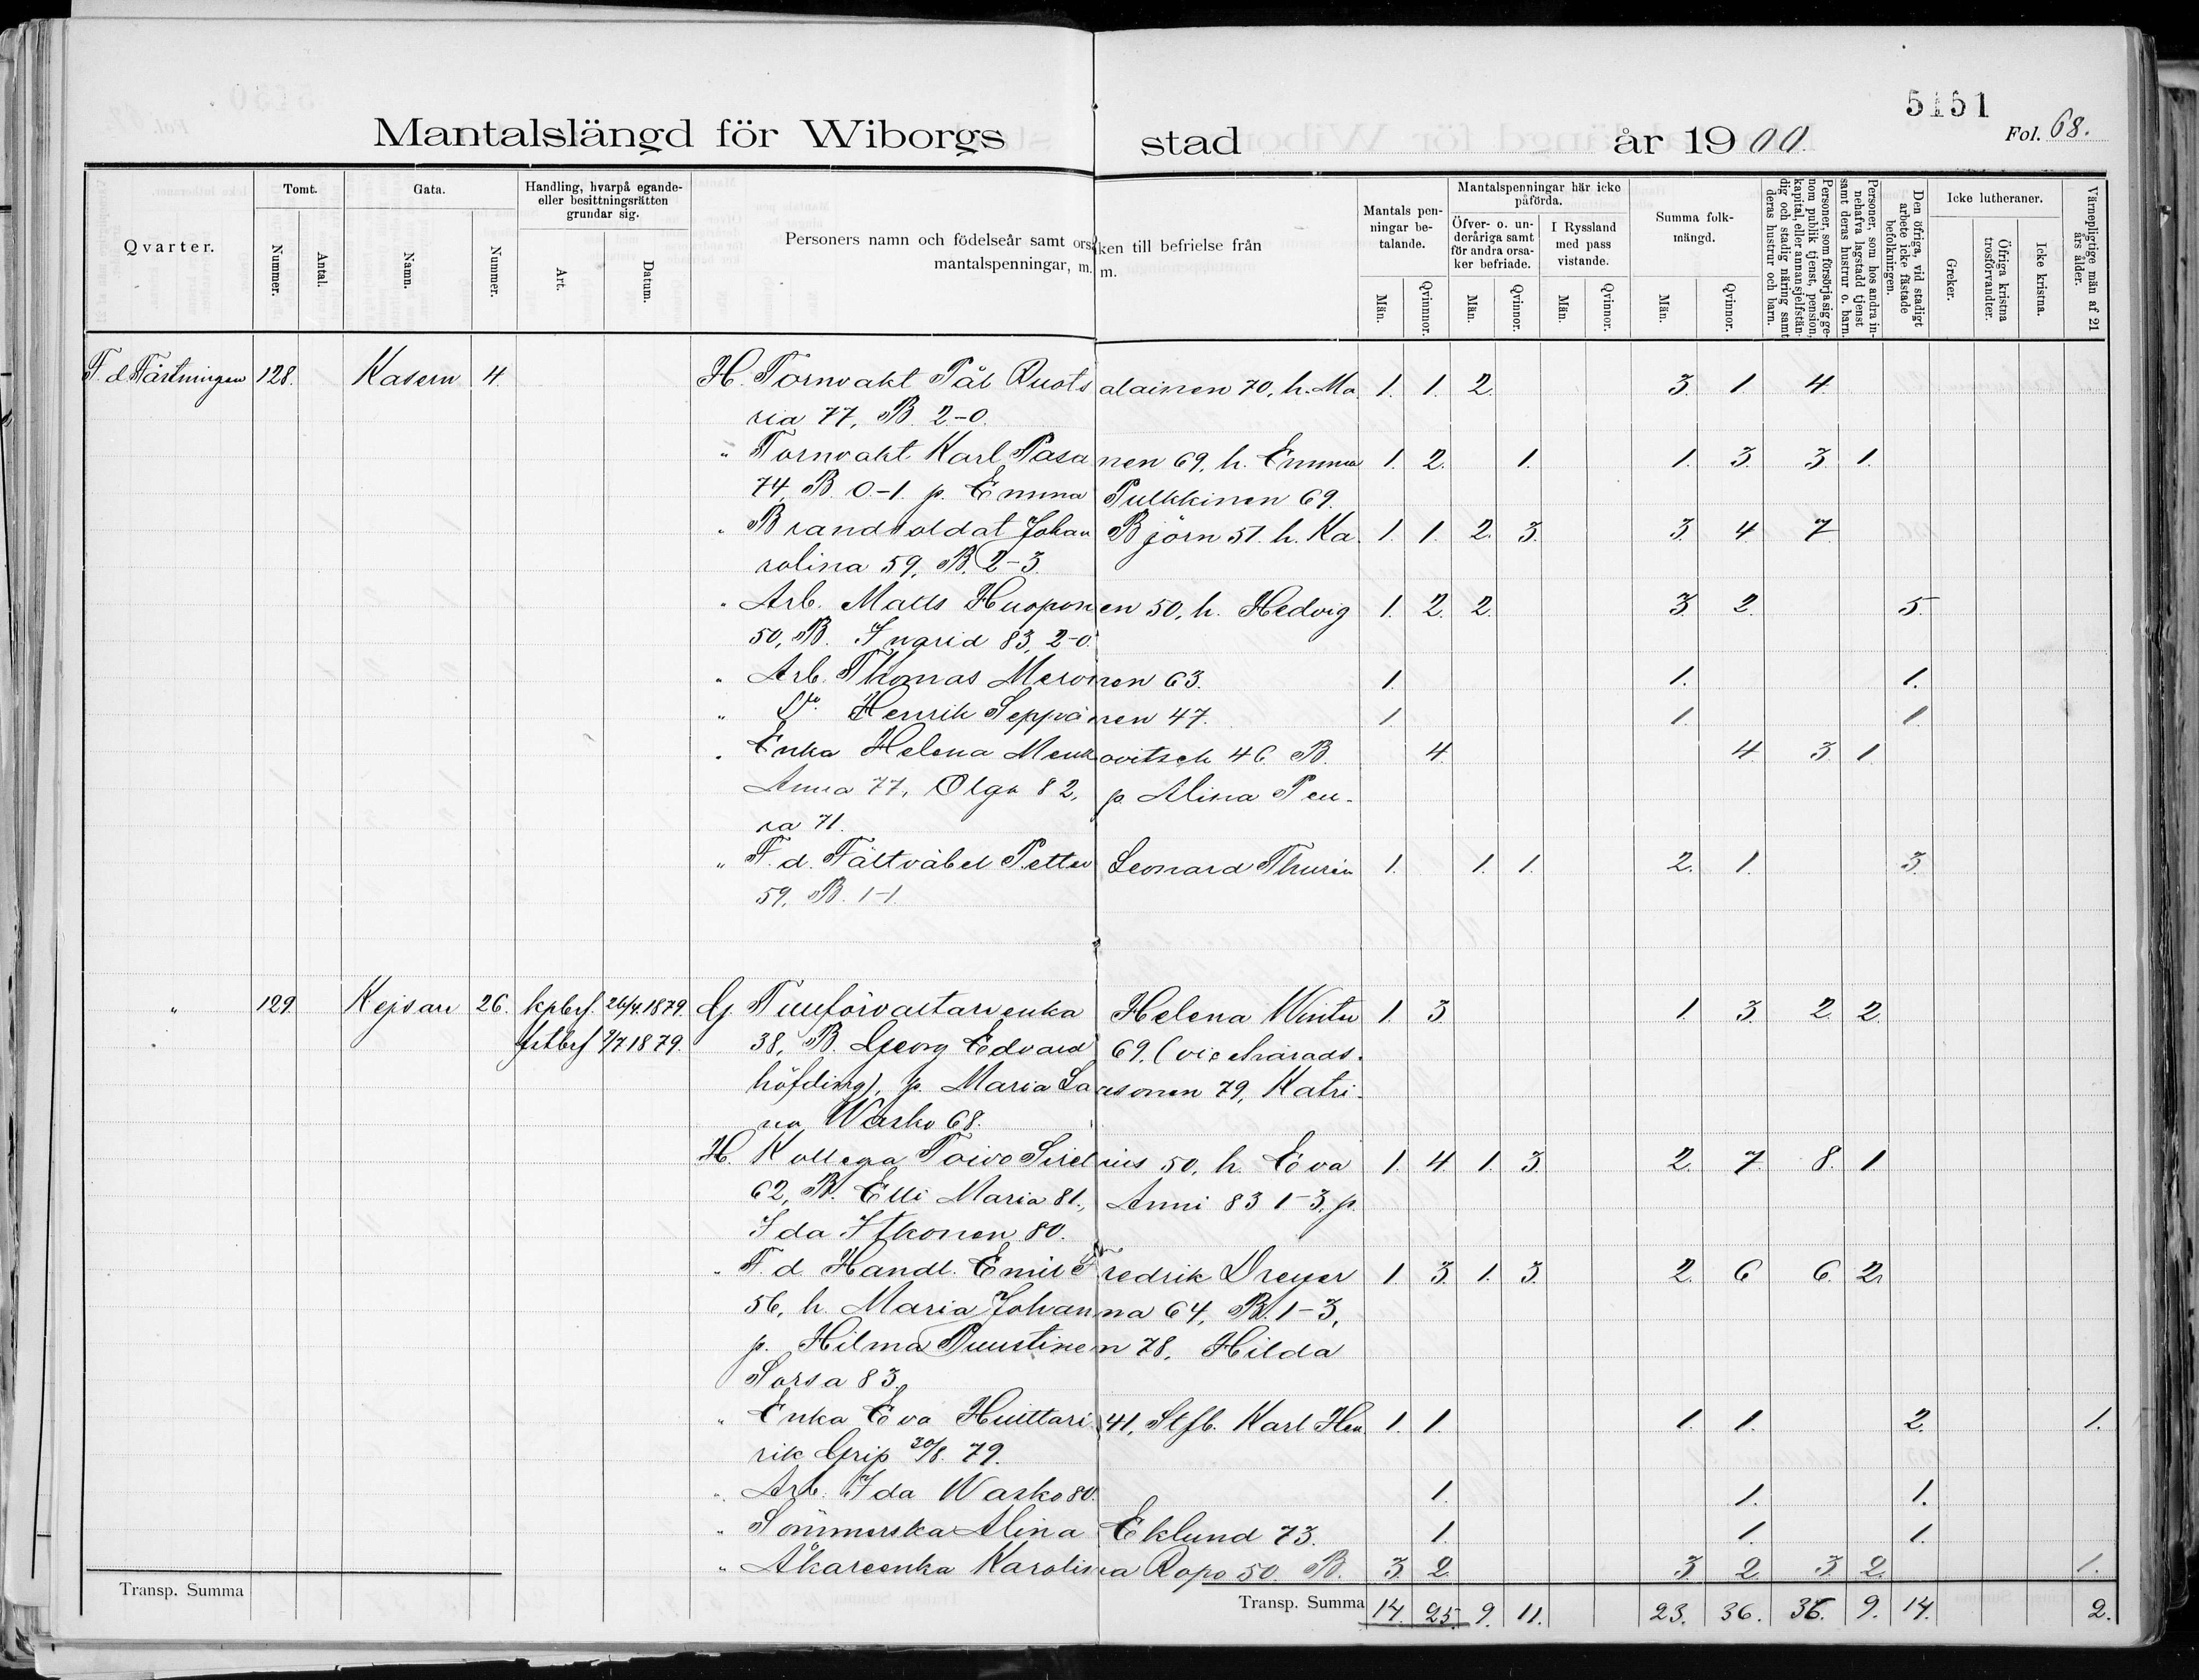 5151
Mantalslängd för Wiborgs stad år 1900. Fol. 68.
Qvarter. Tomt. Nummer. Antal. Gata. Namn. Nummer. Handling, hvarpå egande- eller besittningsrätten grundar sig. Art. Datum.
Personers namn och födelseår samt orsaken till befrielse från mantalspenningar, m. m.
Mantals penningar betalande. Män. Qvinnor. Mantalspenningar här icke påförda. Öfver- o. underåriga samt för andra orsaker befriade. Män. Qvinnor. I Ryssland med pass vistande. Män. Qvinnor. Summa folkmängd. Män. Qvinnor.
Personer, som försörja sig genom publik tjenst, pension, kapital, eller annan sjelfständig och stadig näring samt deras hustrur och barn.
Personer, som hos andra innehafva lagstadd tjenst samt deras hustrur o. barn.
Den öfriga, vid stadigt arbete icke fästade befolkningen.
Icke lutheraner. Greker. Öfriga kristna trosförvandter. Icke kristna.
Värnepligtige män af 21 års ålder.
F. d. Fästningen 128. Kasern 4. H. Tornvakt Pål Ruotsalainen 70, h. Ma 1. 1. 2. 3. 1. 4.
ria 77, B. 2-0.
" Tornvakt Karl Pasanen 69, h. Emma 1. 2. 1. 1. 3. 3. 1.
74, B. 0-1. p. Emma Pulkkinen 69.
" Brandsoldat Johan Björn 51. h. Ka 1. 1. 2. 3. 3. 4 7
rolina 59, B. 2-3.
" Arb. Matts Huoponen 50, h. Hedvig 1. 2. 2. 3. 2. 5.
50, B. Ingrid 83, 2-0.
" Arb. Thomas Meronen 63. 1. 1. 1.
" D:o Henrik Seppänen 47. 1. 1. 1
" Enka Helena Menkovitsch 46 B. 4. 4. 3. 1
Anna 77, Olga 82, p. Alina Peu-
ra 71.
" F. d. Fältväbel Petter Leonard Thurén 1. 1. 1. 2. 1. 3.
59, B. 1-1.
" 129. Kejsare 26. kpbrf. 26/4.1879. G. Tullförvaltarenka Helena Winter 1. 3. 1. 3. 2. 2.
" fstbrf 9/7 1879. 38, B. Georg Edvard 69, (vicehärads-
höfding), p. Maria Laasonen 79, Katri-
na Wasko 68.
H. Kollega Toivo Sirelius 50, h. Eva 1. 4. 1. 3. 2. 7. 8. 1
62, B. Elli Maria 81., Anni 83 1-3, p.
Ida Itkonen 80.
" F. d. Handl. Emil Fredrik Dreyer 1 3. 1. 3. 2. 6 6. 2.
56, h. Maria Johanna 64, B. 1-3,
p. Hilma Puustinen 78, Hilda
Sorsa 83.
" Enka Eva Huittari 41, Stfb. Karl Hen 1. 1. 1. 1. 2. 1.
rik Grip 20/8. 79.
" Arb. Ida Wasko 80. 1. 1. 1.
" Sömmerska Alina Eklund 73. 1. 1. 1.
" Åkareenka Karolina Ropo 50. B. 3. 2. 3 2. 3. 2. 1.
Transp. Summa Transp. Summa 14. 25. 9. 11. 23. 36. 36. 9. 14. 2.